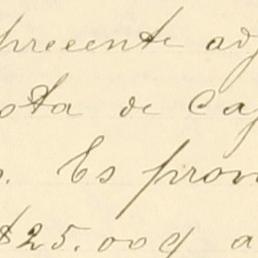 preeente adj
ota de Caj
o. Es pron
$25.00 y a